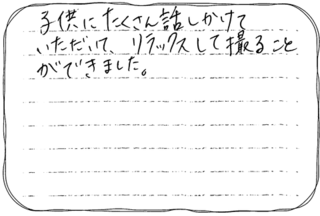 子供にたくさん話しかけて
いただいて、リラックスして撮ること
ができました。